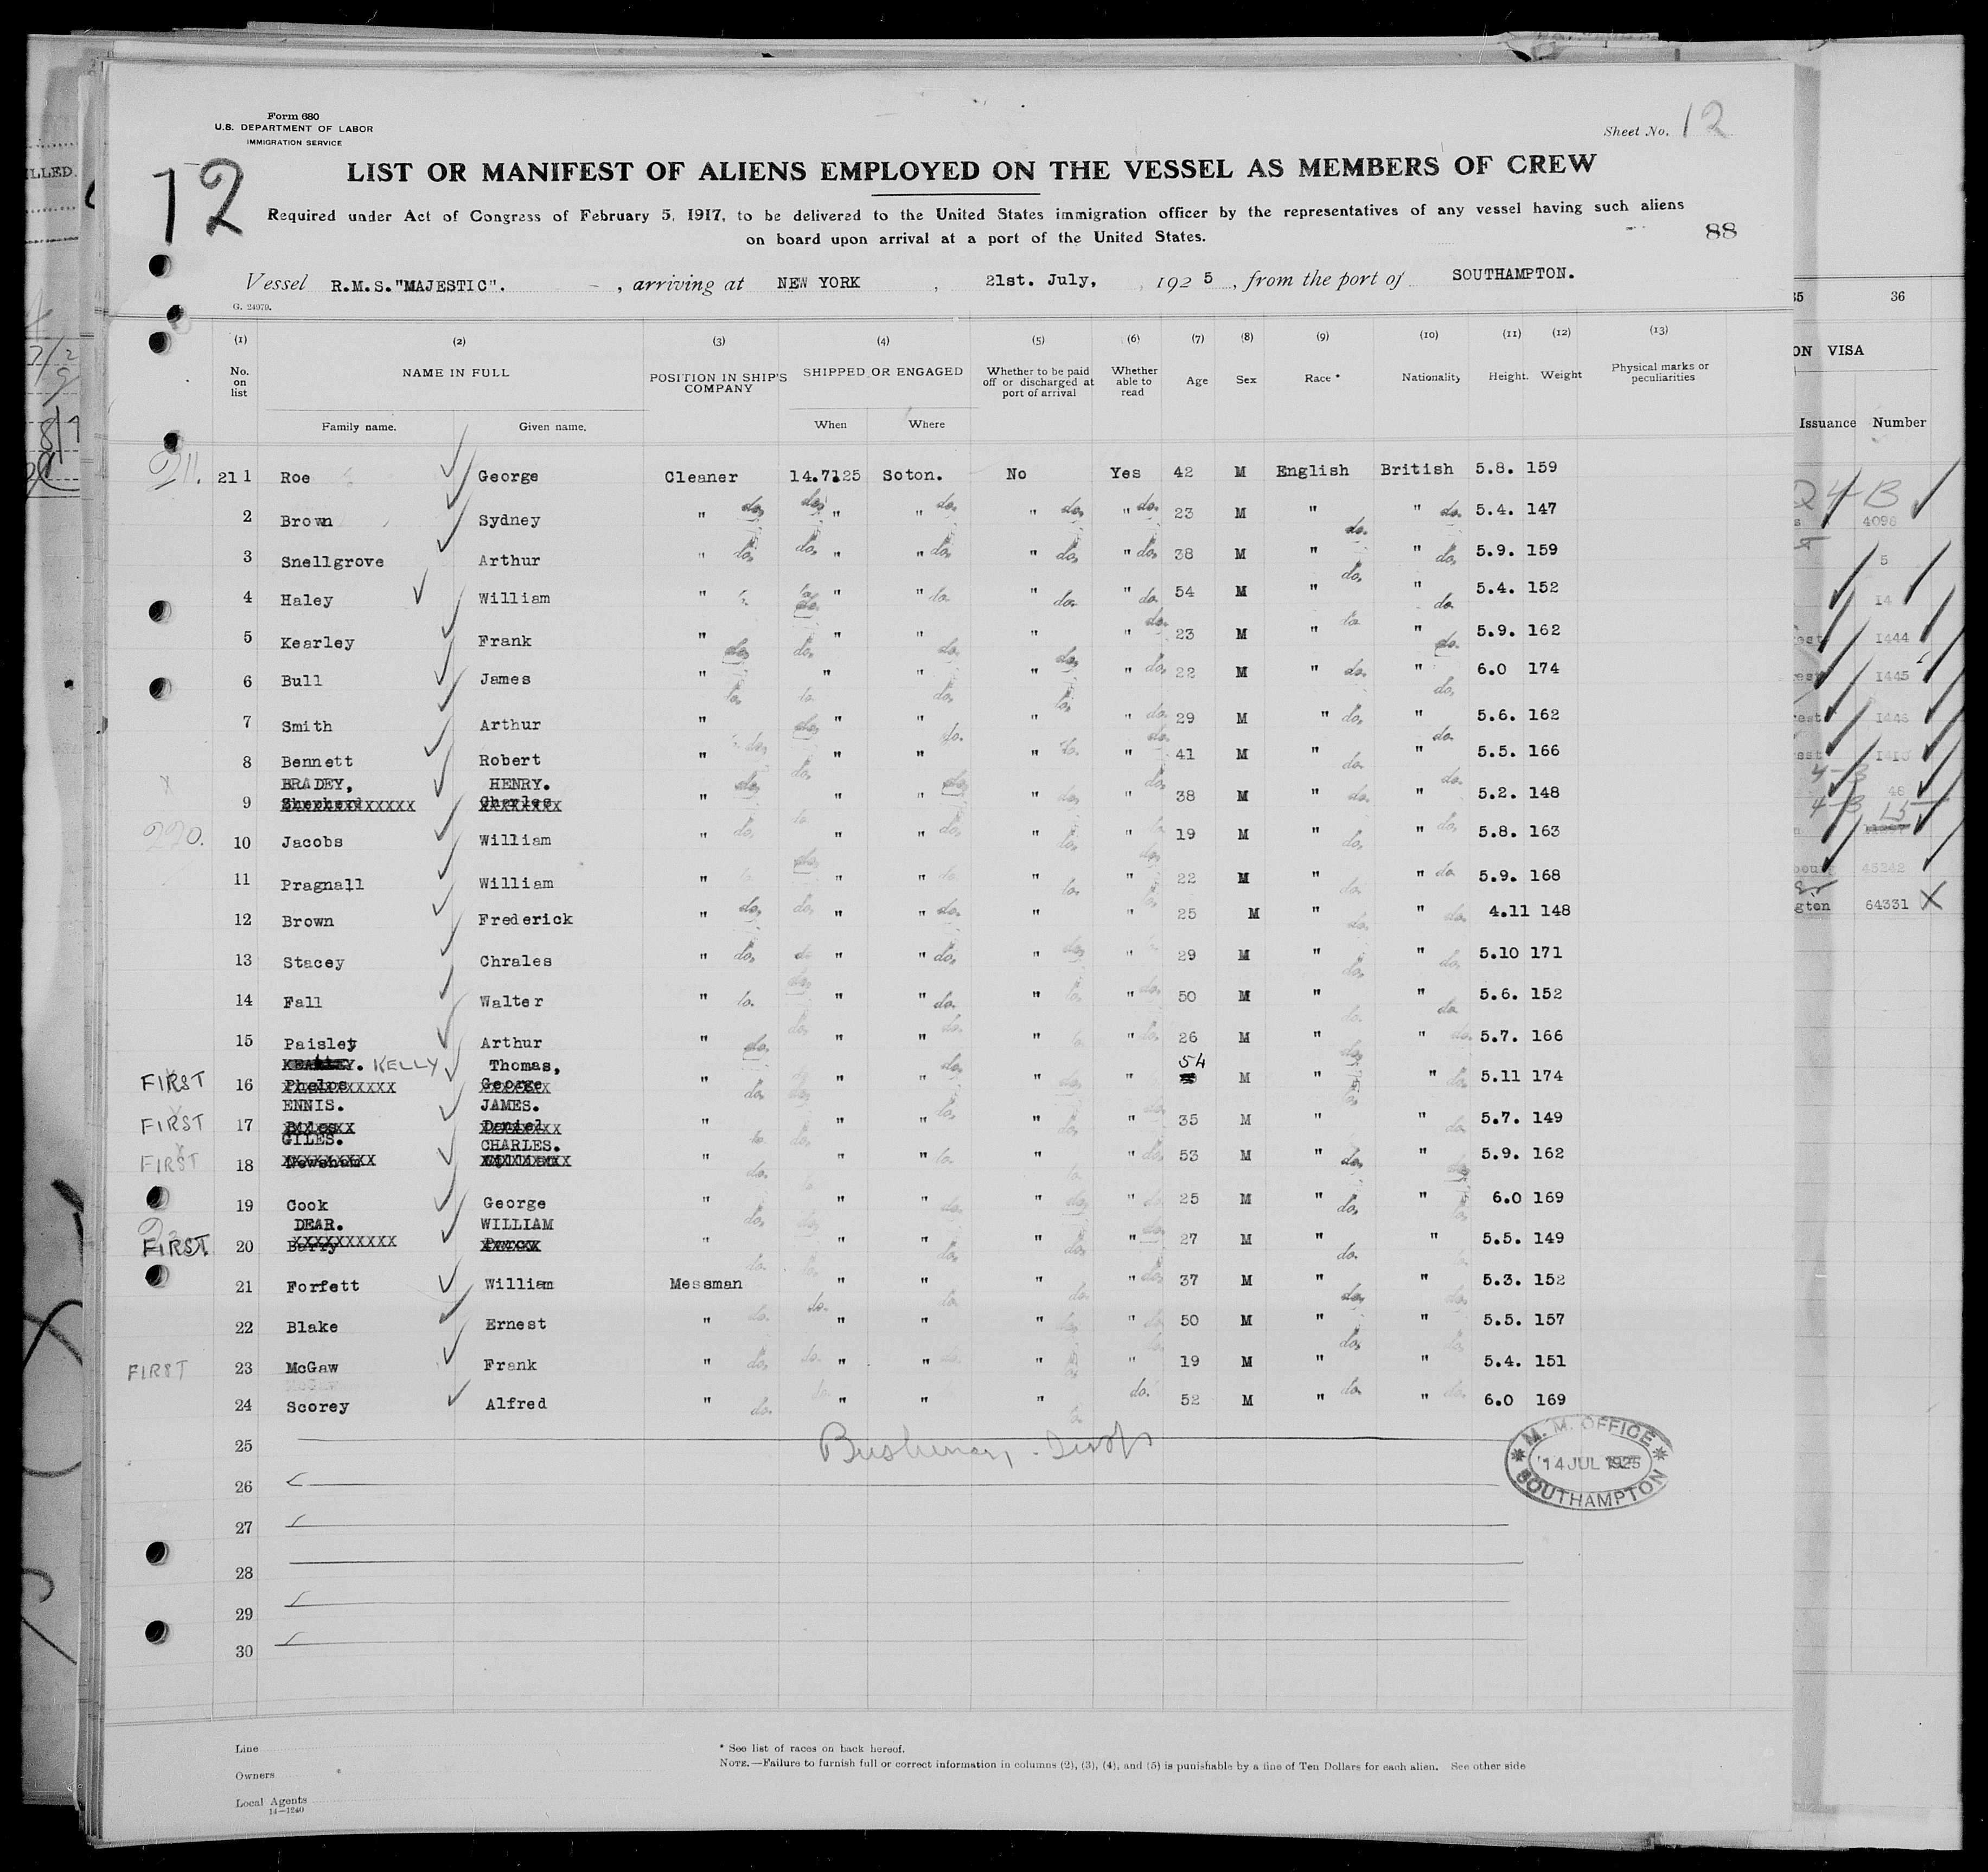 Form 680
U.S. DEPARTMENT OF LABOR
IMMIGRATION SERVICE
Sheet No. 12
12
LIST OR MANIFEST OF ALIENS EMPLOYED ON THE VESSEL AS MEMBERS OF CREW
Required under Act of Congress of February 5, 1917, to be delivered to the United States immigration officer by the representatives of any vessel having such aliens
on board upon arrival at a port of the United States.
88
Vessel R.M.S."MAJESTIC". , arriving at NEW YORK , 21st. July, , 192 5 , from the port of SOUTHAMPTON.
G. 24979.
(1) (2) (3) (4) (5) (6) (7) (8) (9) (10) (11) (12) (13)
No. on list NAME IN FULL POSITION IN SHIP'S COMPANY SHIPPED OR ENGAGED Whether to be paid off or discharged at port of arrival Whether able to read Age Sex Race * Nationality Height. Weight Physical marks or peculiarities
Family name. Given name. When Where
211. 21 1 Roe George Cleaner 14.7.25 Soton. No Yes 42 M English British 5.8. 159
2 Brown Sydney " do. do. " " do. " do. " do. 23 M " do. " do. 5.4. 147
3 Snellgrove Arthur " do. do. " " do. " do. " do. 38 M " do. " do. 5.9. 159
4 Haley William " do. " " do. " do. " do. 54 M " do. " do. 5.4. 152
5 Kearley Frank " do. do. " " do. " do. " do. 23 M " " do. 5.9. 162
6 Bull James " do. " " do. " do. " do. 22 M " do. " do. 6.0 174
7 Smith Arthur " do. " " do. " " do. 29 M " do. " do. 5.6. 162
8 Bennett Robert " do. do. " " " do. " do. 41 M " do. " do. 5.5. 166
BRADEY, HENRY.
9 Shepherd Charles " do. " " do. " do. " do. 38 M " do. " 5.2. 148
220. 10 Jacobs William " do. " " do. " do. " do. 19 M " do. " do. 5.8. 163
11 Pragnall William " do. " " do. " do. " 22 M " do. " do. 5.9. 168
12 Brown Frederick " do. do. " " do. " " 25 M " do. " do. 4.11 148
13 Stacey Chrales " do. do. " " do. " do. " 29 M " do. " do. 5.10 171
14 Fall Walter " do. do. " " do. " do. " do. 50 M " do. " do. 5.6. 152
15 Paisley Arthur " do. do. " " do. " do. " do. 26 M " do. " do. 5.7. 166
KELLY Thomas, 54
FIRST 16 Phelps George " do. do. " " do. " do. " M " do. " do. 5.11 174
ENNIS. JAMES.
FIRST 17 Daniel " do. do. " " do. " do. " do. 35 M " " do. 5.7. 149
GILES. CHARLES.
FIRST 18 Newsham " do. " " do. " do. " do. 53 M " do. " do. 5.9. 162
19 Cook George " do. do. " " do. " do. " do. 25 M " do. " do. 6.0 169
DEAR. WILLIAM
FIRST. 20 Barry Percy " do. do. " " do. " do. " do. 27 M " do. " 5.5. 149
21 Forfett William Messman do. " " do. " do. " do. 37 M " do. " do. 5.3. 152
22 Blake Ernest " do. " " " do. " do. 50 M " do. " do. 5.5. 157
FIRST 23 McGaw Frank " do. do. " " do. " do. " 19 M " " 5.4. 151
24 Scorey Alfred " do. do. " " " do. do. 52 M " do. " do. 6.0 169
25
26
27
28
29
30
M. M. OFFICE
14 JUL 1925
SOUTHAMPTON
Line
Owners
Local Agents
14—1240
* See list of races on back hereof.
NOTE.—Failure to furnish full or correct information in columns (2), (3), (4), and (5) is punishable by a fine of Ten Dollars for each alien. See other side
ILLED.
35 36
ON VISA
Issuance Number
4098
5
14
1444
1445
1446
48
15
45242
gton 64331